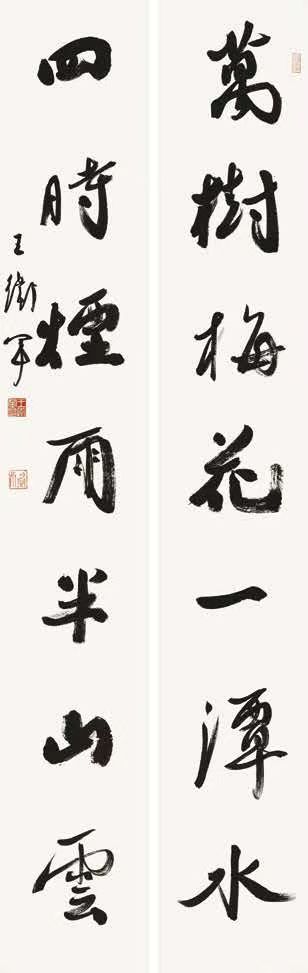 萬樹梅花一潭水
四時煙雨半山雲
王衛軍